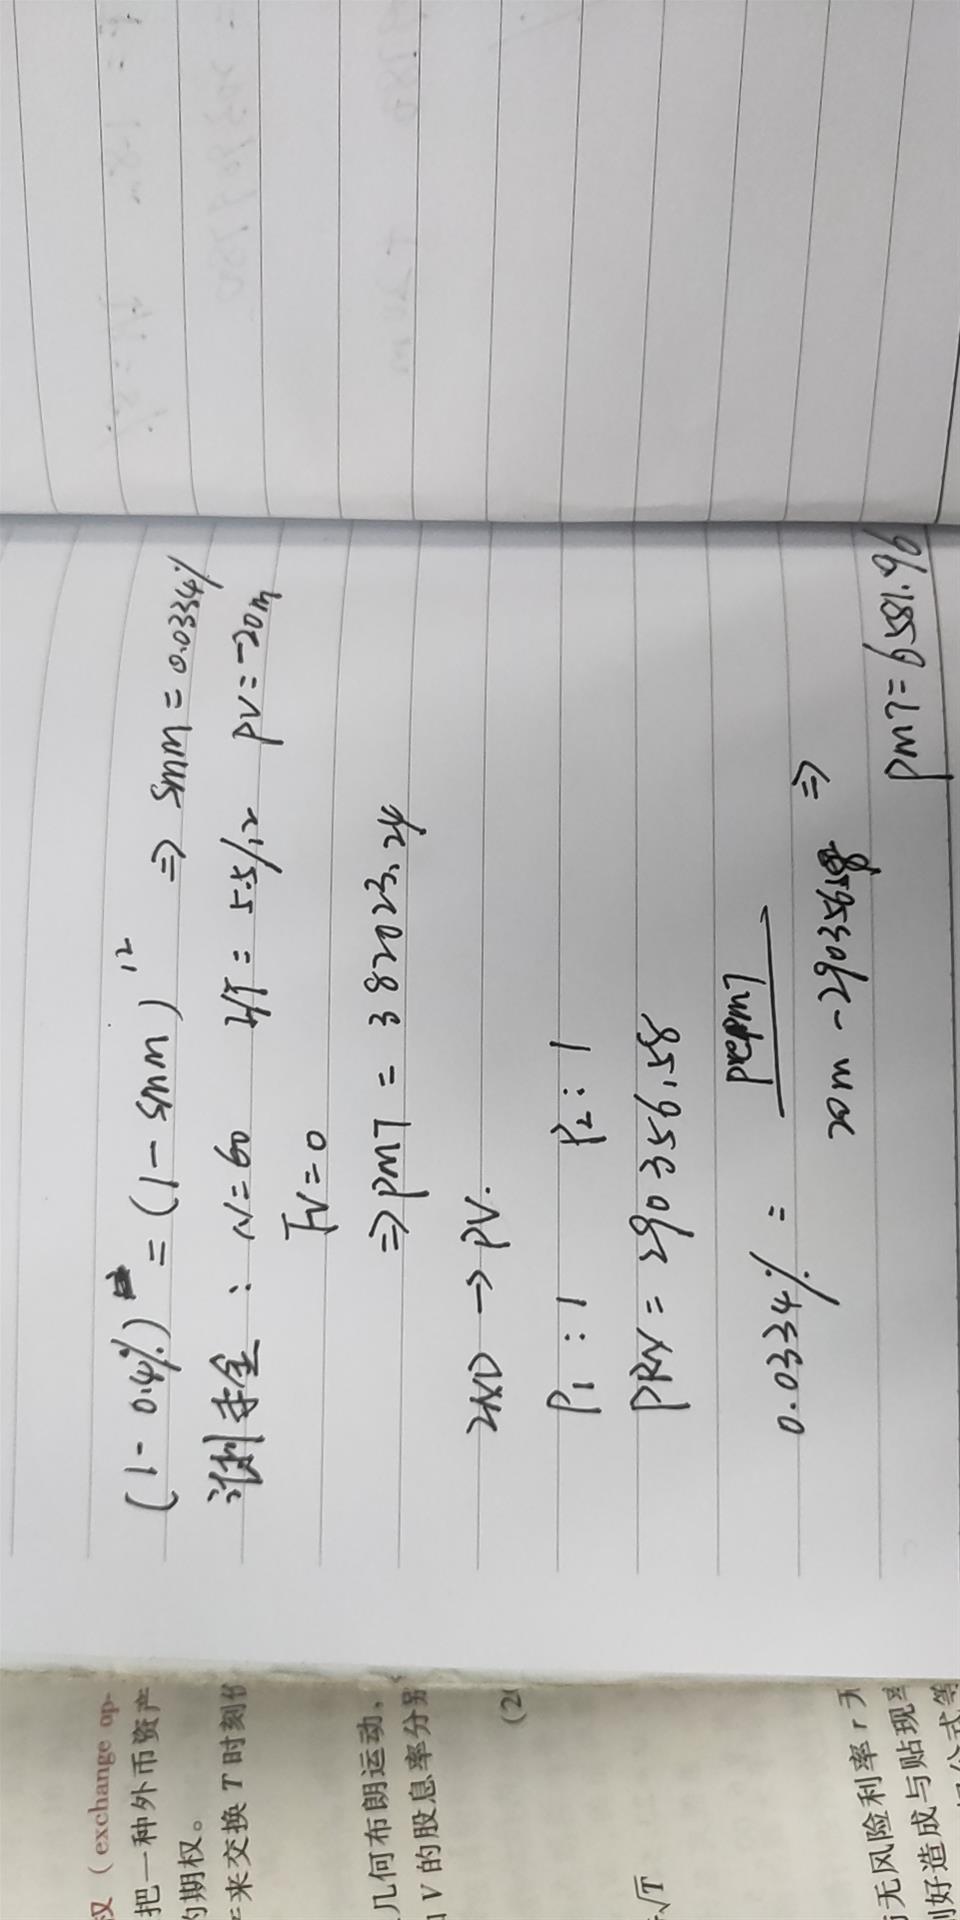 (1 - 0.4%) = (1 - SMM)^12 ⇒ SMM = 0.0334%
N=60 I/Y = 5.5/12 PV=-20m
FV=0
⇒ PMT = 382023.24
2ND → PV.
P1 : 1 P2 : 1
PRN = 290356.58
0.0334% = prepayment / (20m - 290356.58)
⇒
PMT = 6581.96
权（exchange op-
把一种外币资产
的期权。
来交换 T 时刻
几何布朗运动,
V 的股息率分别
(2
√T
无风险利率 r
好造成与贴现